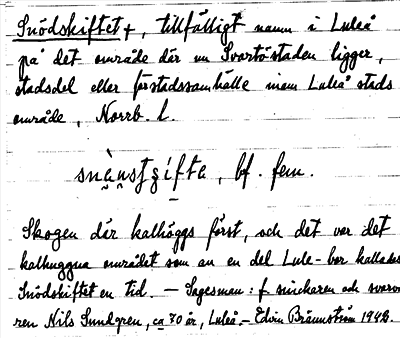 Snödskiftet +, tillfälligt namn i Luleå
på det område där nu Svartöstaden ligger,
stadsdel eller förstadssamhälle inom Luleå stads
område, Norrb. l.
bf. fem.
Skogen där kalhöggs först, och det var det
kalhuggna området som av en del Lule-bor kallades
Snödskiftet en tid. — Sagesman: f. snickaren och svarva-
ren Nils Sundgren, ca 70 år, Luleå. — Edvin Brännström 1942.